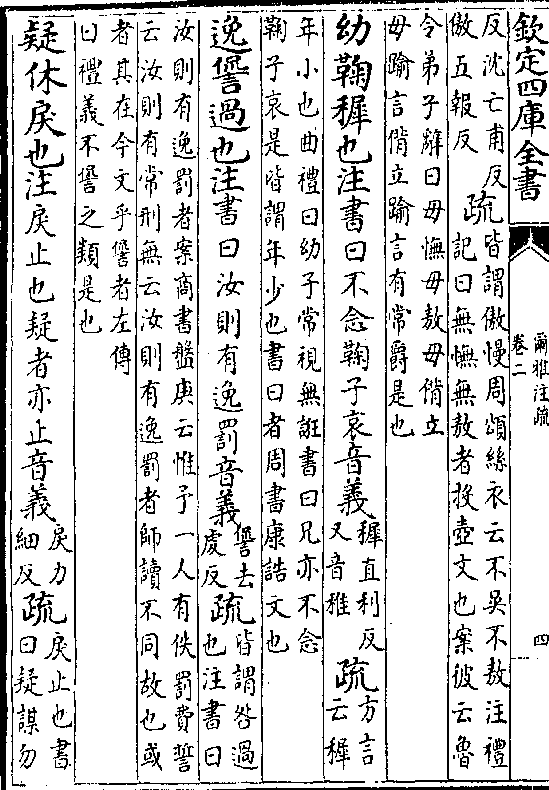 欽定四庫全書
爾雅注疏
卷二
四
反沈亡甫反
傲五報反
疏
皆謂傲慢周頌絲衣云不吳不敖注禮
記曰無憮無敖者投壺文也案彼云魯
令弟子辭曰毋憮毋敖毋偝立
毋踰言偝立踰言有常爵是也
幼鞠穉也注書曰不念鞠子哀音義
穉直利反
又音稚
疏
方言
云穉
年小也曲禮曰幼子常視無誑書曰兄亦不念
鞠子哀是皆謂年少也書曰者周書康誥文也
逸諐過也注書曰汝則有逸罰音義
諐去
虔反
疏
皆謂咎過
也注書曰
汝則有逸罰者案商書盤庚云惟予一人有佚罰費誓
云汝則有常刑無云汝則有逸罰者師讀不同故也或
者其在今文乎諐者左傳
曰禮義不諐之類是也
疑休戾也注戾止也疑者亦止音義
戾力
細反
疏
戾止也書
曰疑謀勿